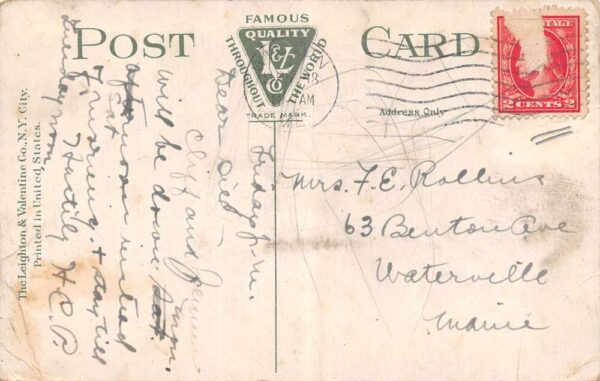 POST CARD
FAMOUS
QUALITY
THROUGHOUT THE WORLD
V&L
Co
TRADE MARK
8
AM
ME.
POSTAGE
2 CENTS 2
Address Only
The Leighton & Valentine Co., N.Y. City.
Printed in United States.
Friday p.m.
Dear
Cliff and
will be down
afternoon instead
Sat. morning + stay till
Tuesday noon.
Hastily H.E.P.
Mrs. F. E. Rollins
63 Benton Ave
Waterville
Maine